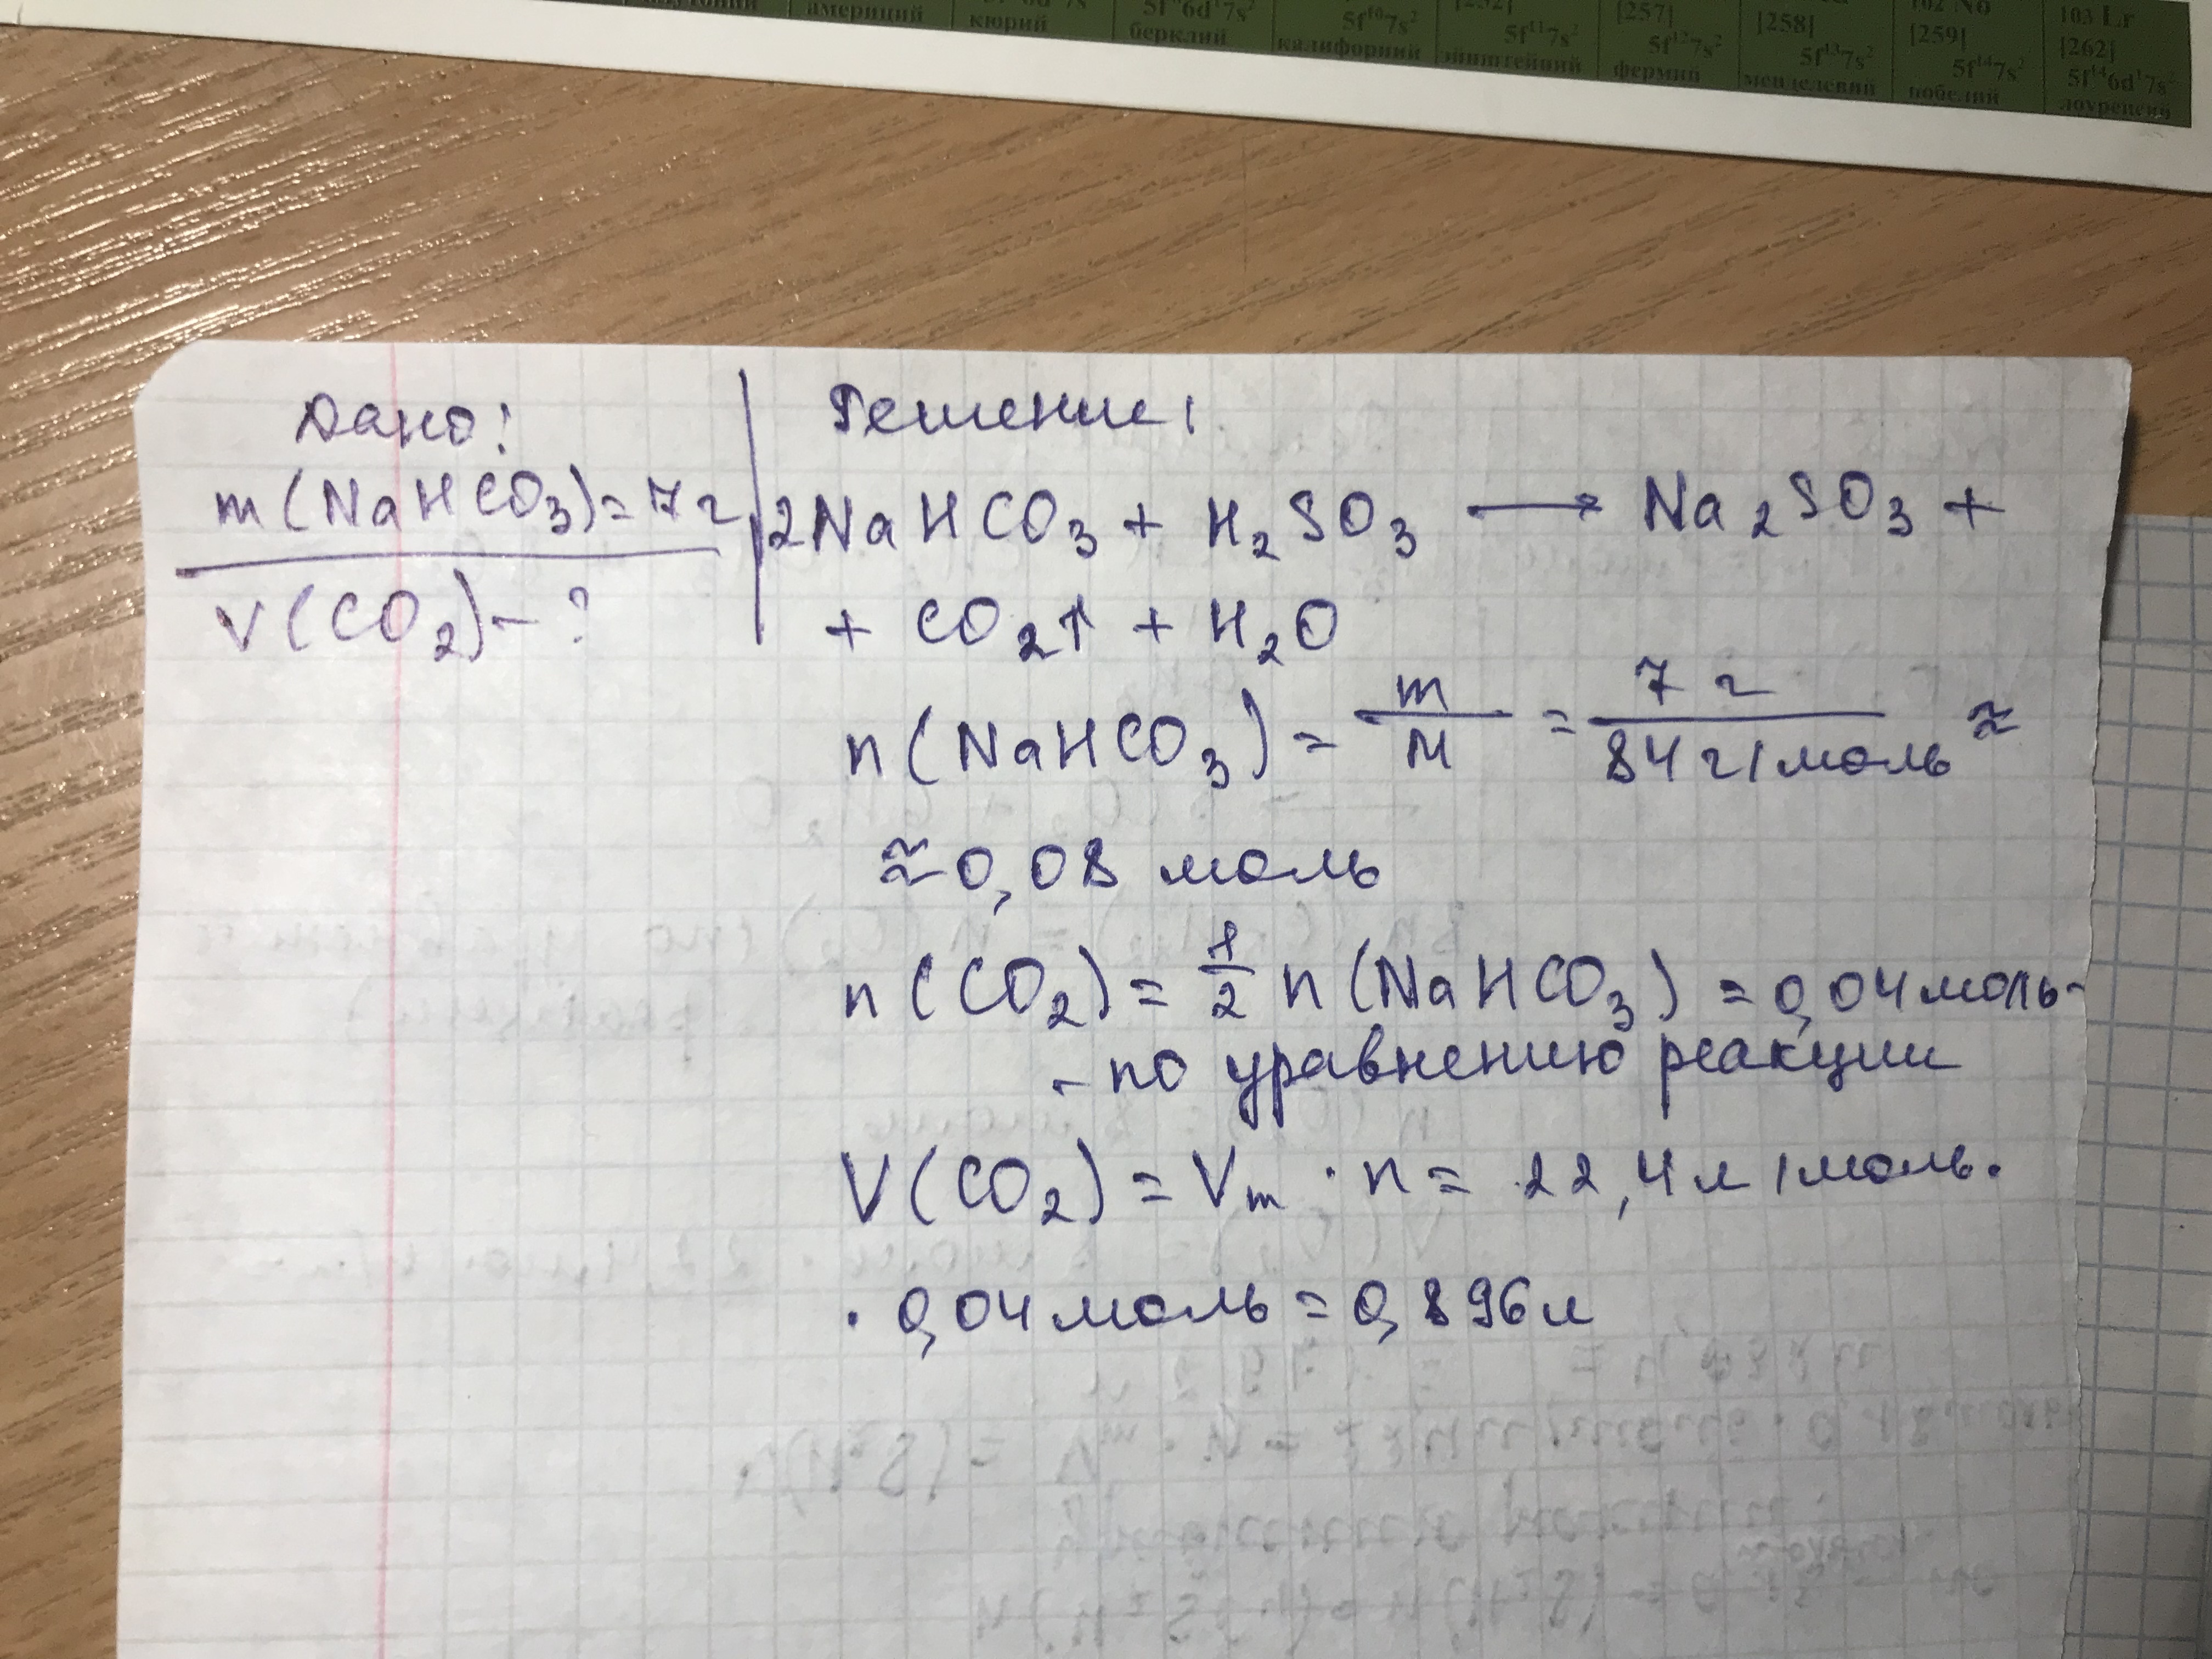 америций
кюрий
5f⁹6d¹7s²
берклий
5f¹⁰7s²
калифорний
5f¹¹7s²
эйнштейний
[257]
5f¹²7s²
фермий
[258]
5f¹³7s²
менделевий
102 No
[259]
5f¹⁴7s²
нобелий
103 Lr
[262]
5f¹⁴6d¹7s²
лоуренсий
Дано:
m(NaHCO₃)=7г
V(CO₂)-?
Решение:
2NaHCO₃ + H₂SO₃ → Na₂SO₃ +
+ CO₂↑ + H₂O
n(NaHCO₃) = m/M = 7 г/84 г/моль ≈
≈ 0,08 моль
n(CO₂) = 1/2 n(NaHCO₃) = 0,04 моль-
- по уравнению реакции
V(CO₂) = Vm · n = 22,4 л/моль ·
· 0,04 моль = 0,896 л